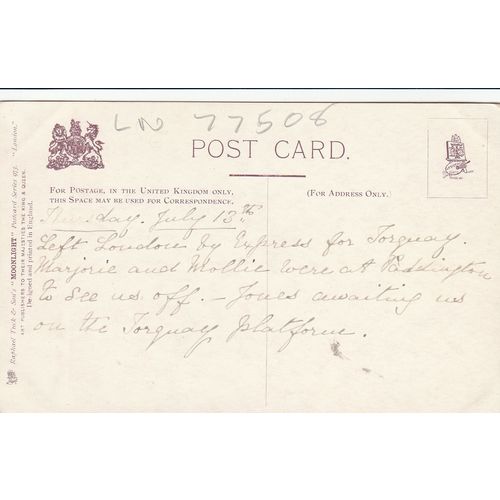 LN 77508
POST CARD.
FOR POSTAGE, IN THE UNITED KINGDOM ONLY,
THIS SPACE MAY BE USED FOR CORRESPONDENCE.
(FOR ADDRESS ONLY.)
Thursday. July 13th
Left London by Express for Torquay.
Marjorie and Mollie were at Paddington
to see us off. – Jones awaiting us
on the Torquay platform.
Raphael Tuck & Sons' "MOONLIGHT" Postcard Series 973. "London."
ART PUBLISHERS TO THEIR MAJESTIES THE KING & QUEEN.
Designed and printed in England.